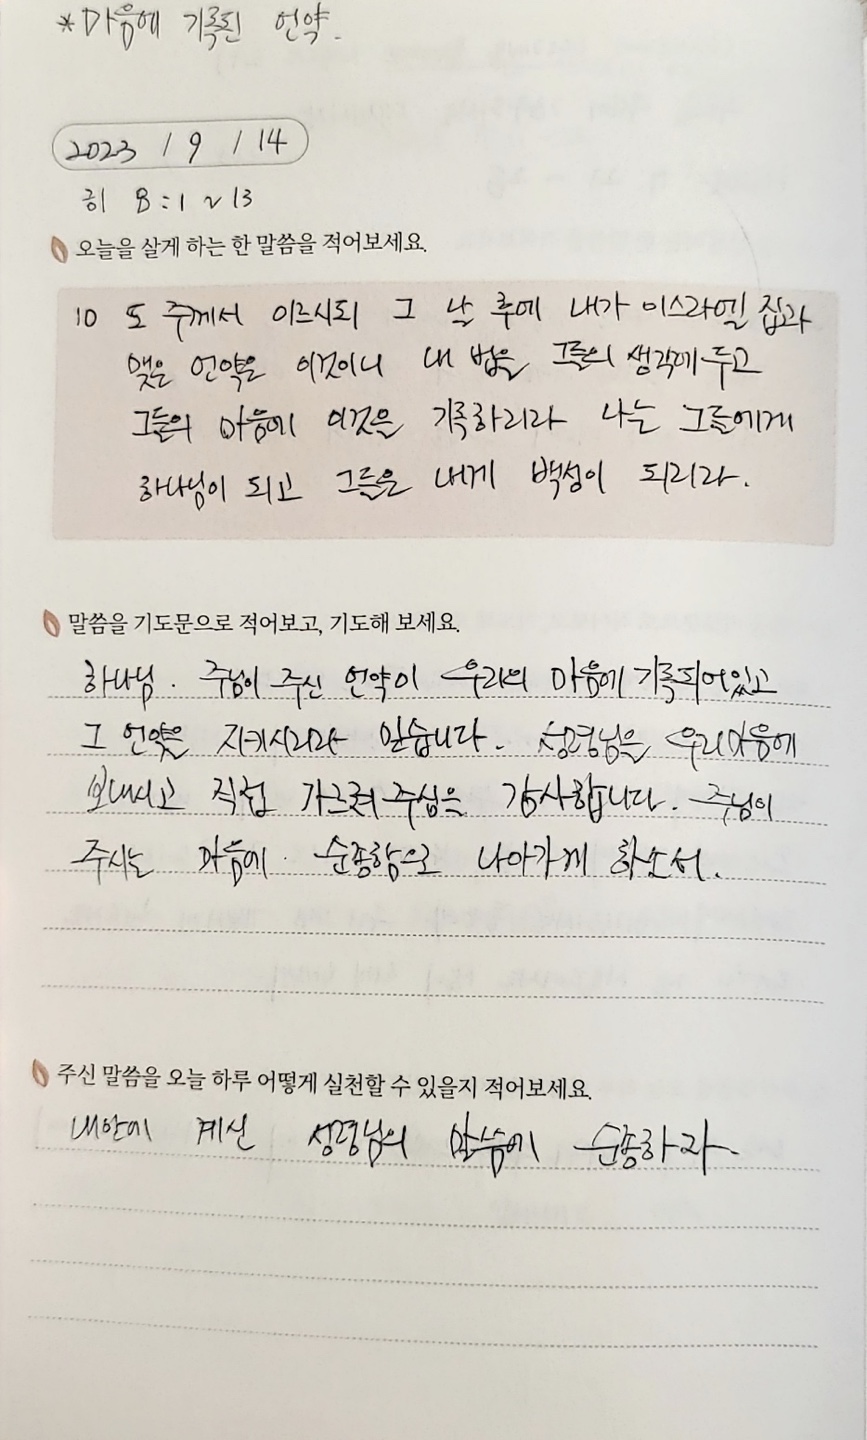 *마음에 기록된 언약.
2023 / 9 / 14
히 8:1~13
오늘을 살게 하는 한 말씀을 적어보세요.
10 또 주께서 이르시되 그 날 후에 내가 이스라엘 집과
맺은 언약은 이것이니 내 법을 그들의 생각에 두고
그들의 마음에 이것을 기록하리라 나는 그들에게
하나님이 되고 그들은 내게 백성이 되리라.
말씀을 기도문으로 적어보고, 기도해 보세요.
하나님. 주님이 주신 언약이 우리의 마음에 기록되어있고
그 언약을 지키시리라 믿습니다. 성령님을 우리마음에
보내시고 직접 가르쳐주심을 감사합니다. 주님이
주시는 마음에 순종함으로 나아가게 하소서.
주신 말씀을 오늘 하루 어떻게 실천할 수 있을지 적어보세요.
내안에 계신 성령님의 말씀에 순종하자.